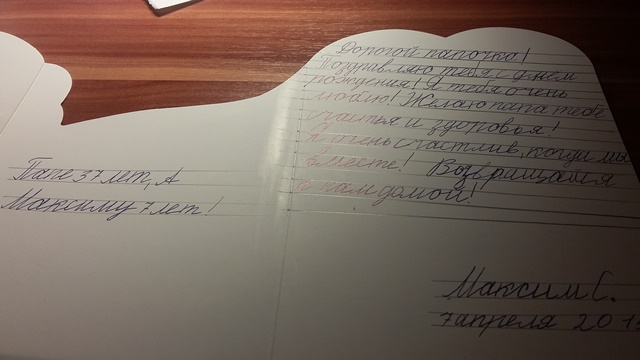 Папе 37 лет, А
Максиму 7 лет!
Дорогой папочка!
Поздравляю тебя с днем
рождения! Я тебя очень
люблю! Желаю папа тебе
счастья и здоровья!
Я очень счастлив, когда мы
вместе! Возвращайся
к нам домой!
Максим С.
7 апреля 201